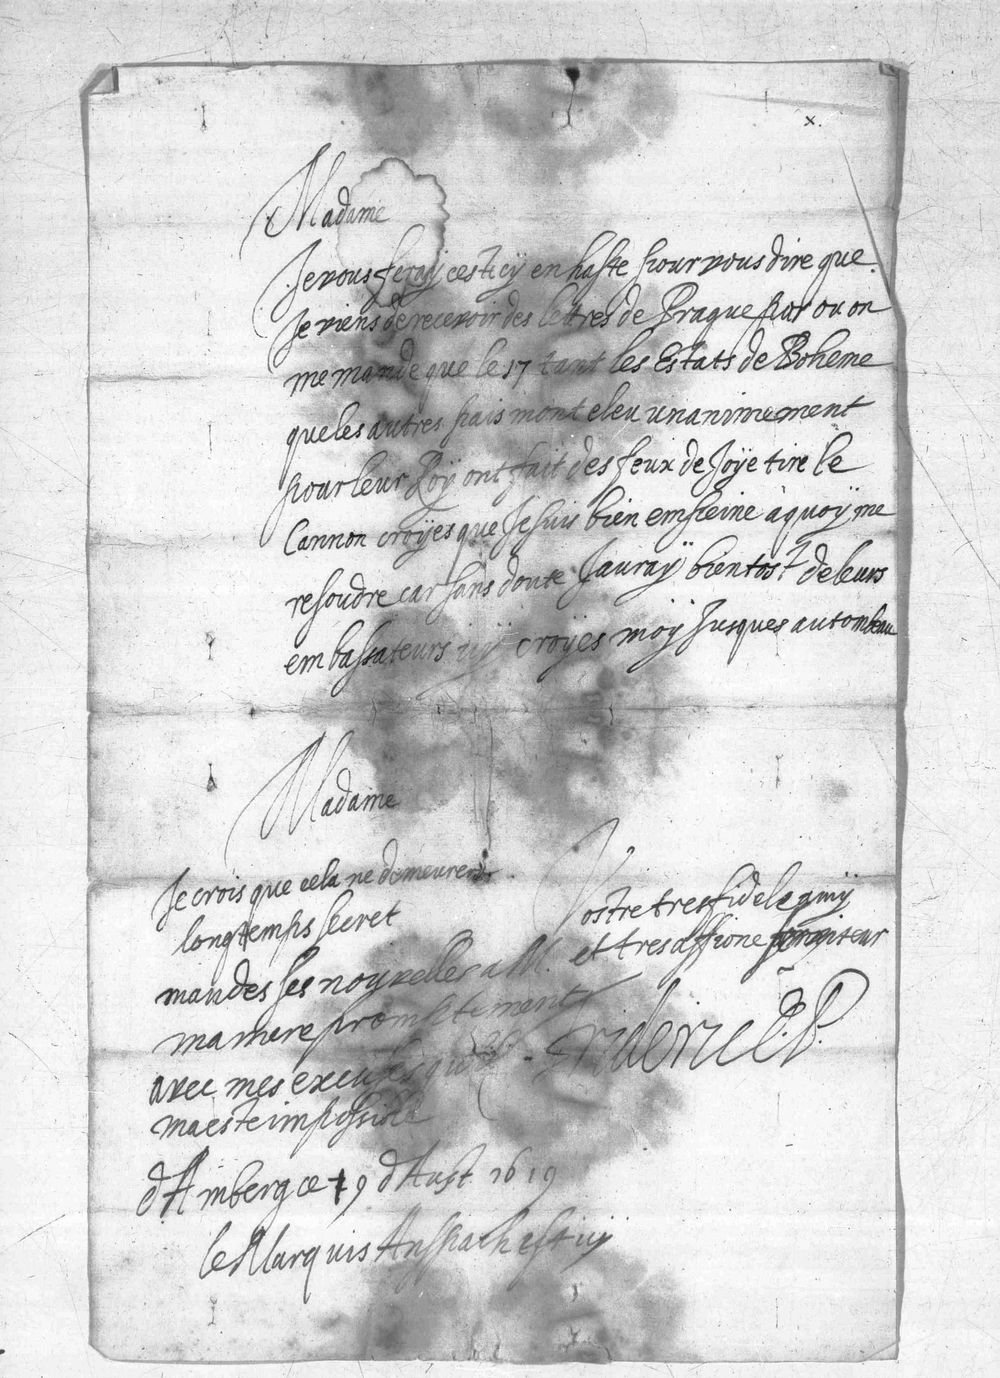 x.
Madame
Je vous feray cestcÿ en haste pour vous dire que
Je viens de recevoir des lettres de Prague par ou on
me mande que le 17 tant les Estats de Boheme
que les autres pais mont eleu unanimement
pour leur Roÿ ont fait des feux de Joÿe tire le
Cannon croÿes que Je suis bien empeine à quoÿ me
resoudre car sans doute Jauraÿ bientost de leurs
embassateurs icÿ croÿes moÿ Jusques au tombeau
Madame
Je crois que cela ne demeurera
longtemps secret
mandes ses nouvelles a M.
ma mere promptement
avec mes excuses
ma este impossible
Vostre tres fidele amÿ
et tres affione serviteur
Frideric P.
d'Amberg ce 19 d'Aust 1619
le Marquis Anspach est icÿ